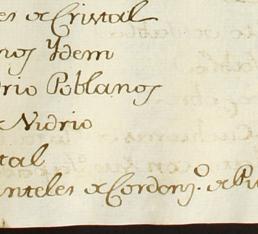 es de Cristal
nos Ydem
drio Poblanos
de Vidrio
tal
anteles de Cordon